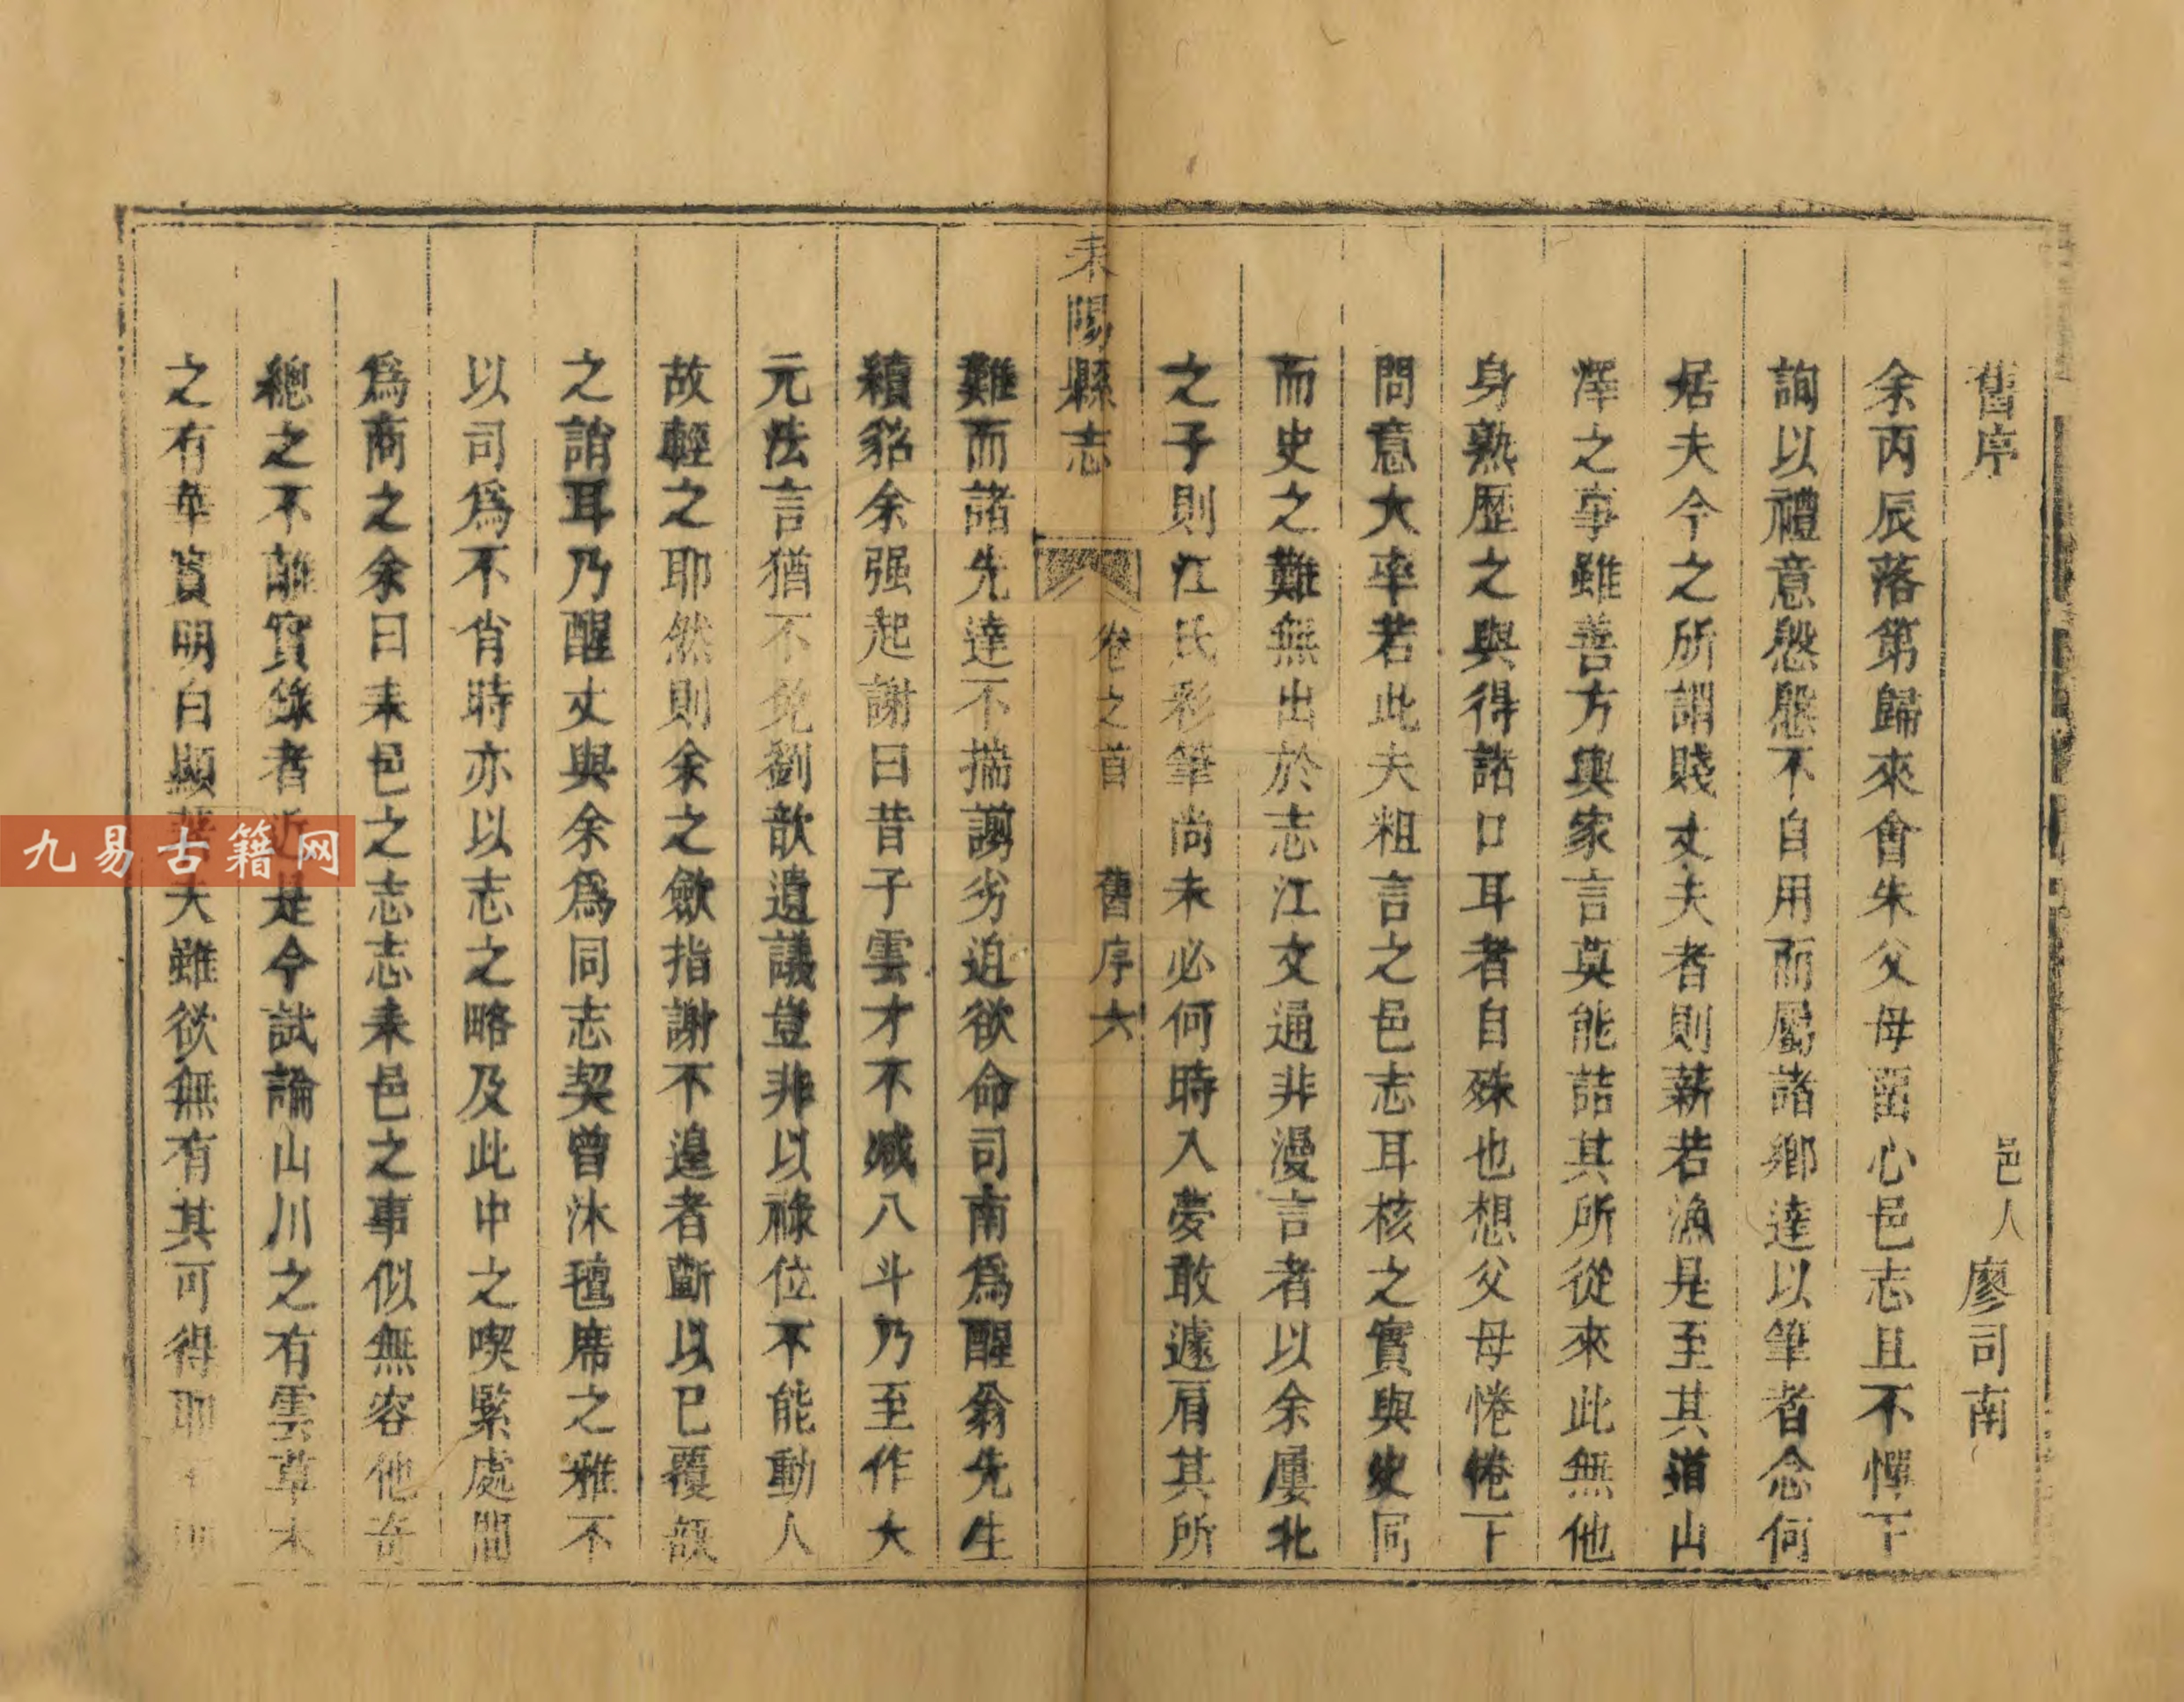 舊序　邑人　廖司南
余丙辰落第歸來會朱父母畱心邑志且不憚下
詢以禮意慇慇不自用而屬諸鄉達以筆者念何
居夫今之所謂賤丈夫者則薪若漁是至其道山
澤之事雖善方輿家言莫能詰其所從來此無他
身熟歷之與得諸口耳者自殊也想父母惓惓下
問意大率若此夫粗言之邑志耳核之實與史同
而史之難無出於志江文通非漫言者以余屢北
之子則江氏彩筆尚未必何時入夢敢遽肩其所
耒陽縣志　卷之首　舊序　六
難而諸先達不揣謭劣迫欲命司南為醒翁先生
續貂余强起謝曰昔子雲才不減八斗乃至作大
元法言猶不免劉歆遺議豈非以祿位不能動人
故輕之耶然則余之歛指謝不遑者斷以巳覆瓿
之誚耳乃醒丈與余為同志契曾沐氊席之雅不
以司為不肖時亦以志之略及此中之喫緊處間
為商之余曰耒邑之志志耒邑之事似無容他奇
總之不離實錄者近是今試論山川之有雲草木
之有華實明白顯夫雖欲無有其可得耶
九易古籍网